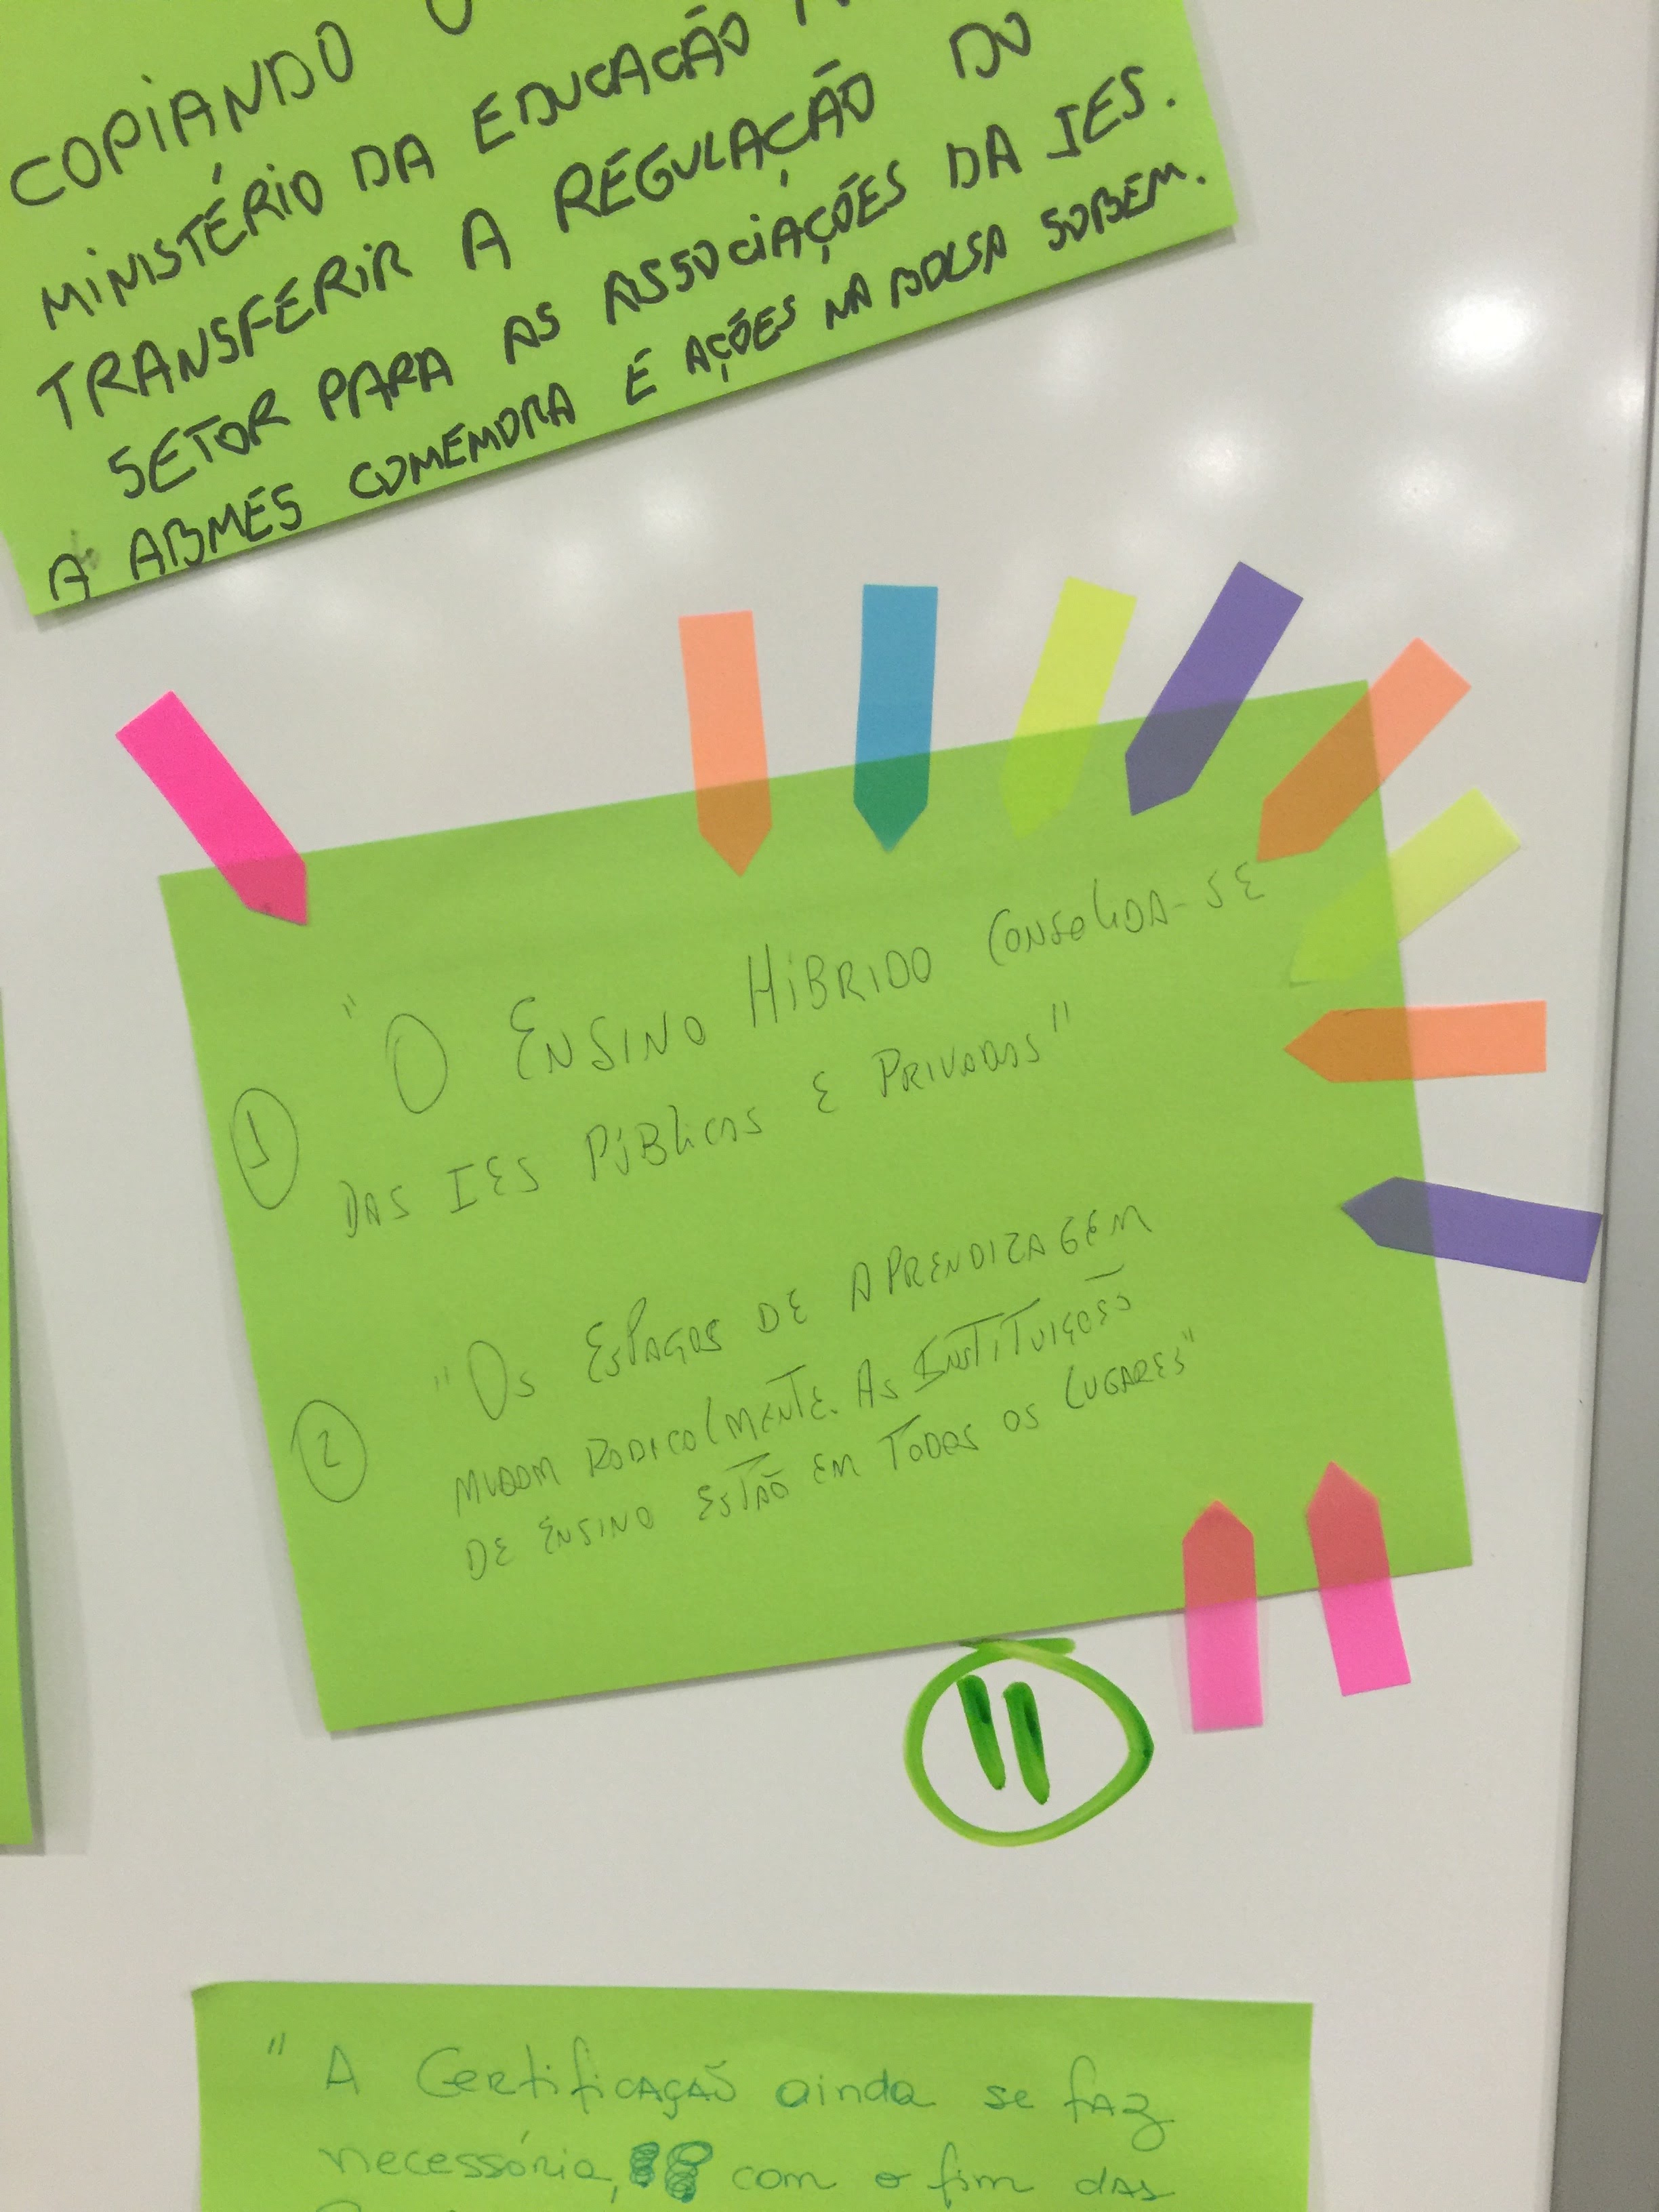 COPIANDO
MINISTÉRIO DA EDUCAÇÃO
TRANSFERIR A REGULAÇÃO DO
SETOR PARA AS ASSOCIAÇÕES DA IES.
A ABMES COMEMORA E AÇÕES NA BOLSA SOBEM.
"O ENSINO HÍBRIDO CONSOLIDA-SE
1 DAS IES PÚBLICAS E PRIVADAS"
"OS ESPAÇOS DE APRENDIZAGEM
2 MUDAM RADICALMENTE. AS INSTITUIÇÕES
DE ENSINO ESTÃO EM TODOS OS LUGARES"
11
"A Certificação ainda se faz
necessária, com o fim das